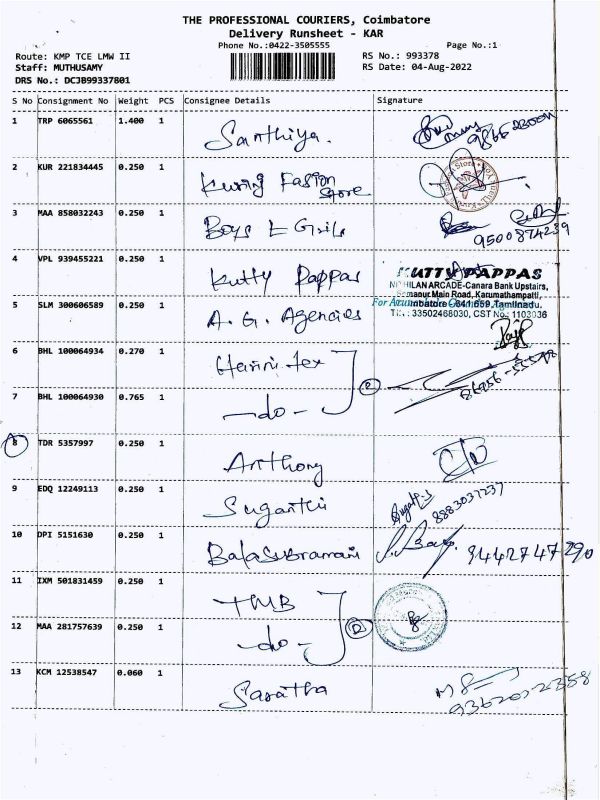 THE PROFESSIONAL COURIERS, Coimbatore
Delivery Runsheet - KAR
Phone No.:0422-3505555
Page No.:1
Route: KMP TCE LMW II
Staff: MUTHUSAMY
DRS No.: DCJB99337801
RS No.: 993378
RS Date: 04-Aug-2022
S No Consignment No Weight PCS Consignee Details Signature
1 TRP 6065561 1.400 1 Santhiya.
2 KUR 221834445 0.250 1 Fasion Store
3 MAA 858032243 0.250 1 Boys & Girls
9500874239
4 VPL 939455221 0.250 1 Kutty Pappas
KUTTY PAPPAS
ARCADE-Canara Bank Upstairs,
Main Road, Karumathampatti,
5 SLM 300606589 0.250 1 A. G. Agencies
Coimbatore - 641 659, Tamilnadu,
33502468030, CST No.: 1103036
6 BHL 100064934 0.270 1
7 BHL 100064930 0.765 1 -do-
8 TDR 5357997 0.250 1 Anthony
9 EDQ 12249113 0.250 1 Suganthi
8883037237
10 DPI 5151630 0.250 1 Balasubramani
9442747290
11 IXM 501831459 0.250 1 TMB
12 MAA 281757639 0.250 1 -do-
13 KCM 12538547 0.060 1 Saratha